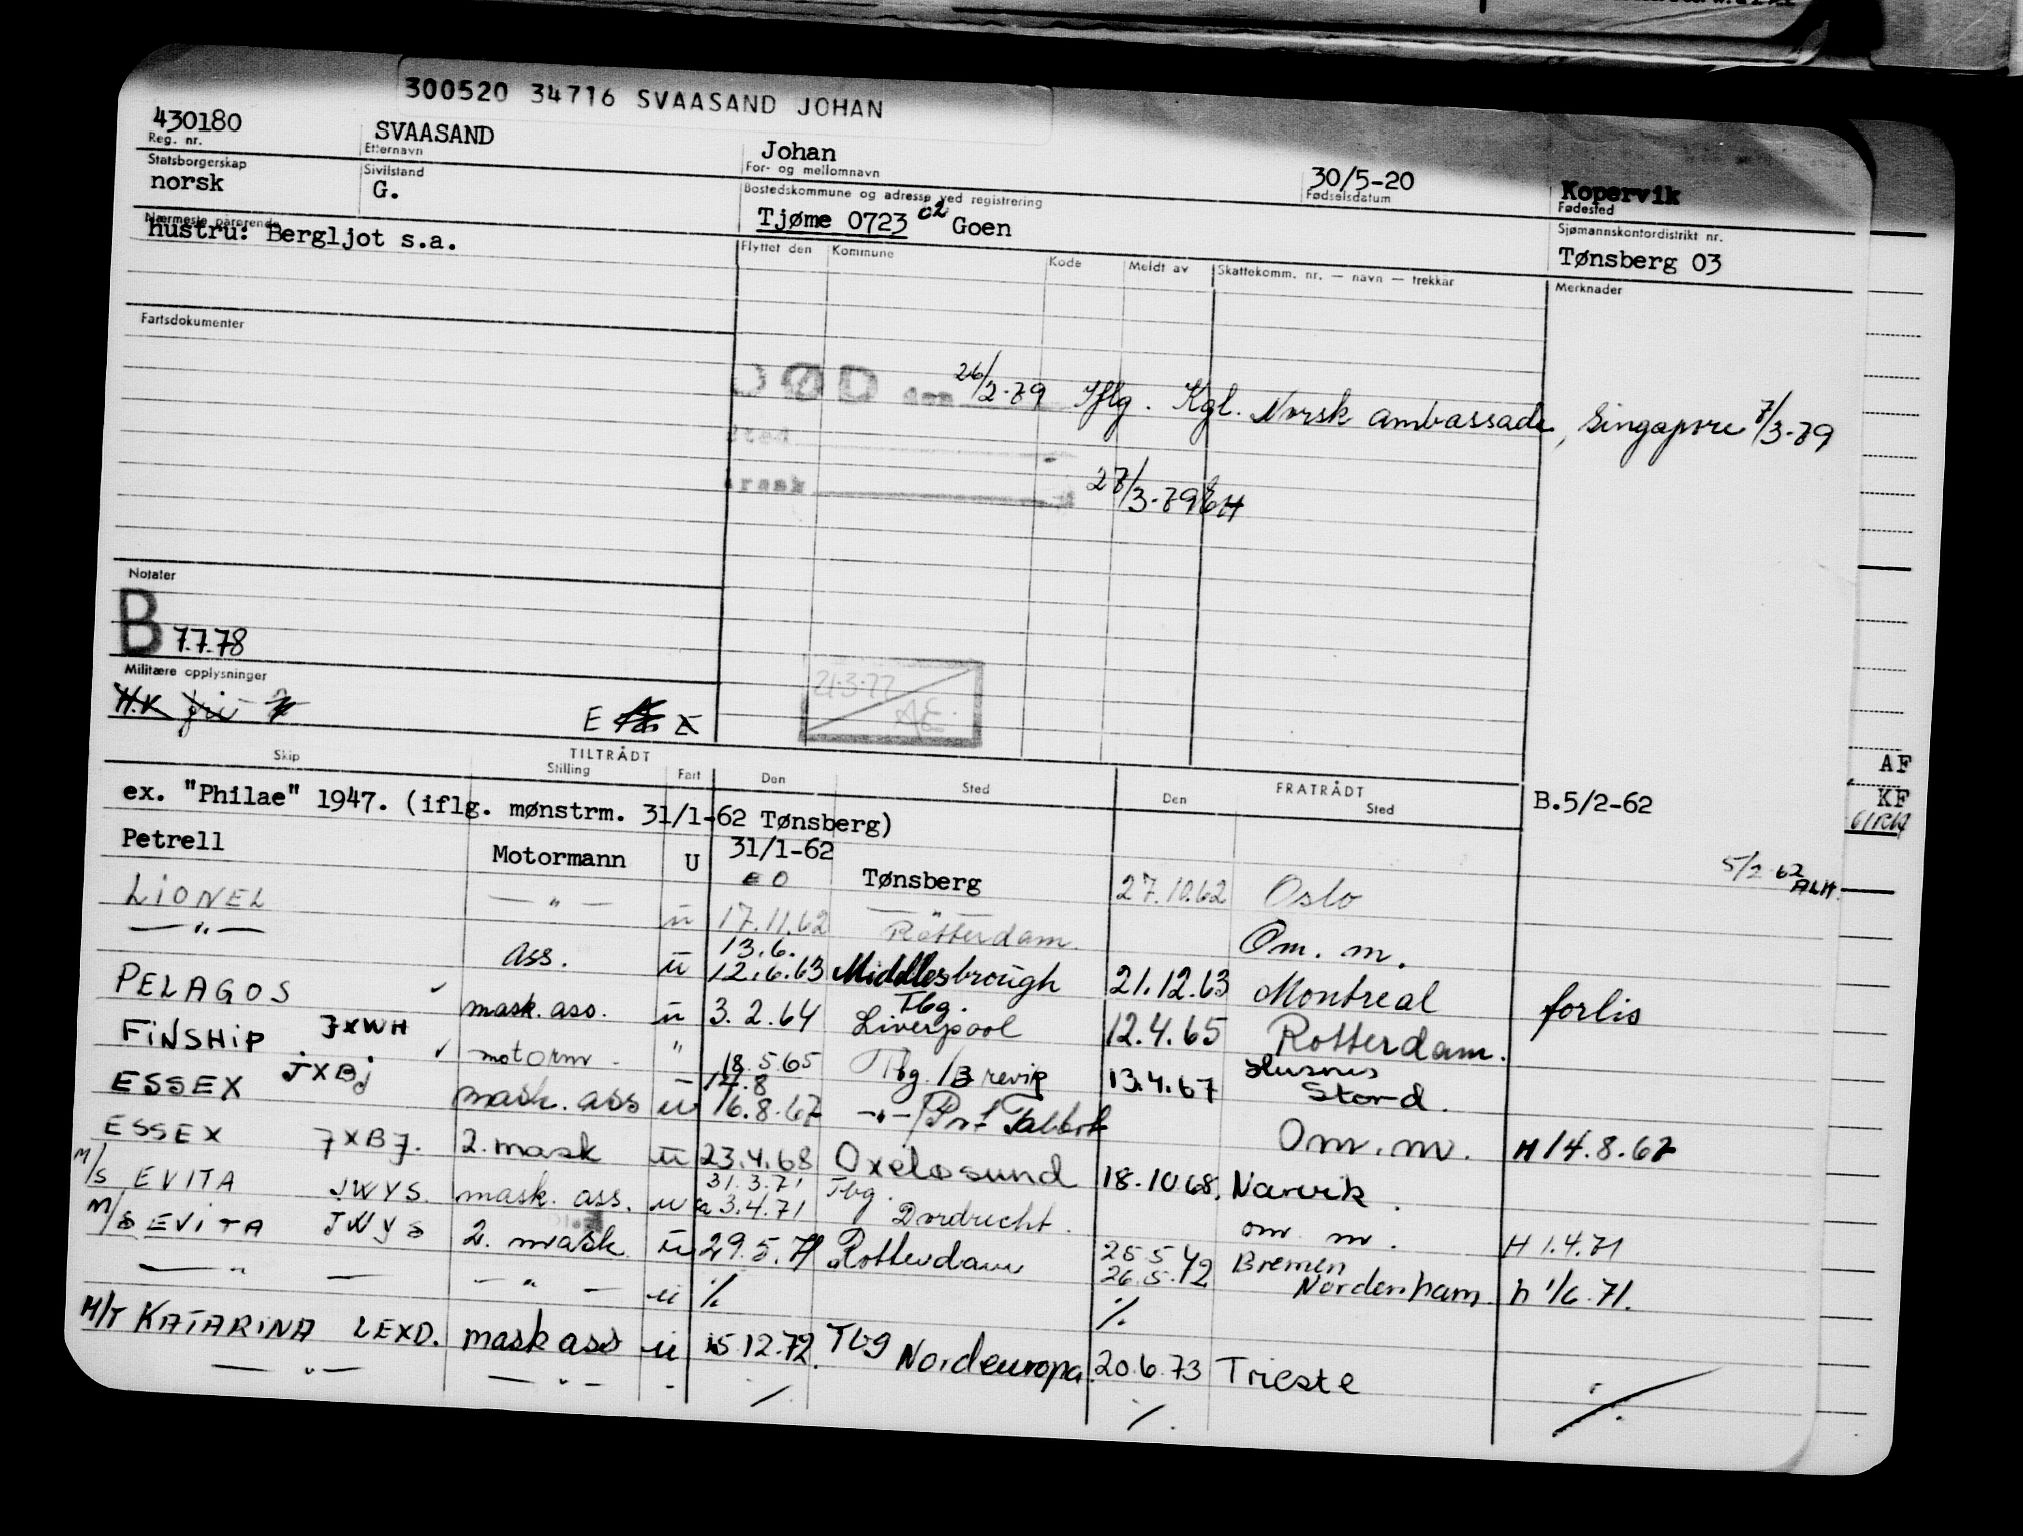 300520 34716 SVAASAND JOHAN
430180 SVAASAND Johan 30/5-20 Kopervik
Reg. nr. Etternavn For- og mellomnavn Fødselsdatum Fødested
Statsborgerskap Sivilstand Bostedskommune og adresse ved registrering Sjømannskontordistrikt nr.
norsk G. Tjøme 0723 02 Goen Tønsberg 03
Nærmeste pårørende Flyttet den Kommune Kode Meldt av Skattekomm. nr. — navn — trekkår Merknader
hustru: Bergljot s.a.
Fartsdokumenter
DØD den 26/2-79 Iflg. Kgl. Norsk ambassade, Singapore 7/3-79
Sted
27/3-79 EH
Notater
B 7.7.78
Militære opplysninger
H.K fri
E
21.3.77
AE
AF
KF
Skip TILTRÅDT Stilling Fart Den Sted Den FRATRÅDT Sted
ex. "Philae" 1947. (iflg. mønstrm. 31/1-62 Tønsberg) B.5/2-62
Petrell Motormann U 31/1-62 Tønsberg 27.10.62 Oslo 5/2-62 ALH.
LIONEL — " — u 17.11.62 Rotterdam. Om. m.
— " — ass. u 13.6. 12.6.63 Middlesbrough 21.12.63 Montreal forlis
PELAGOS mask. ass. u 3.2.64 Tbg. Liverpool 12.4.65 Rotterdam.
FINSHIP JXWH motorm. " 18.5.65 Tbg./Brevik 13.4.67 Husnes Stord.
ESSEX JXBJ mask. ass u 14.8 16.8.67 — " — Om. m. H 14.8.67
ESSEX JXBJ. 2. mask u 23.4.68 Oxelosund 18.10.68. Narvik
M/S EVITA JWYS. mask. ass. u 31.3.71 a 3.4.71 Tbg. Dordrecht. om m. H 1.4.71
M/S EVITA JWYS 2. mask u 29.5.71 Rotterdam 25.5.72 26.5.72 Bremen Nordenham. h 1/6.71.
— " — — " — u ./. ./.
M/T KATARINA LEXD. mask ass u 15.12.72. Tbg Nordeuropa 20.6.73 Trieste
— " — — " — - ./. ./. ./.